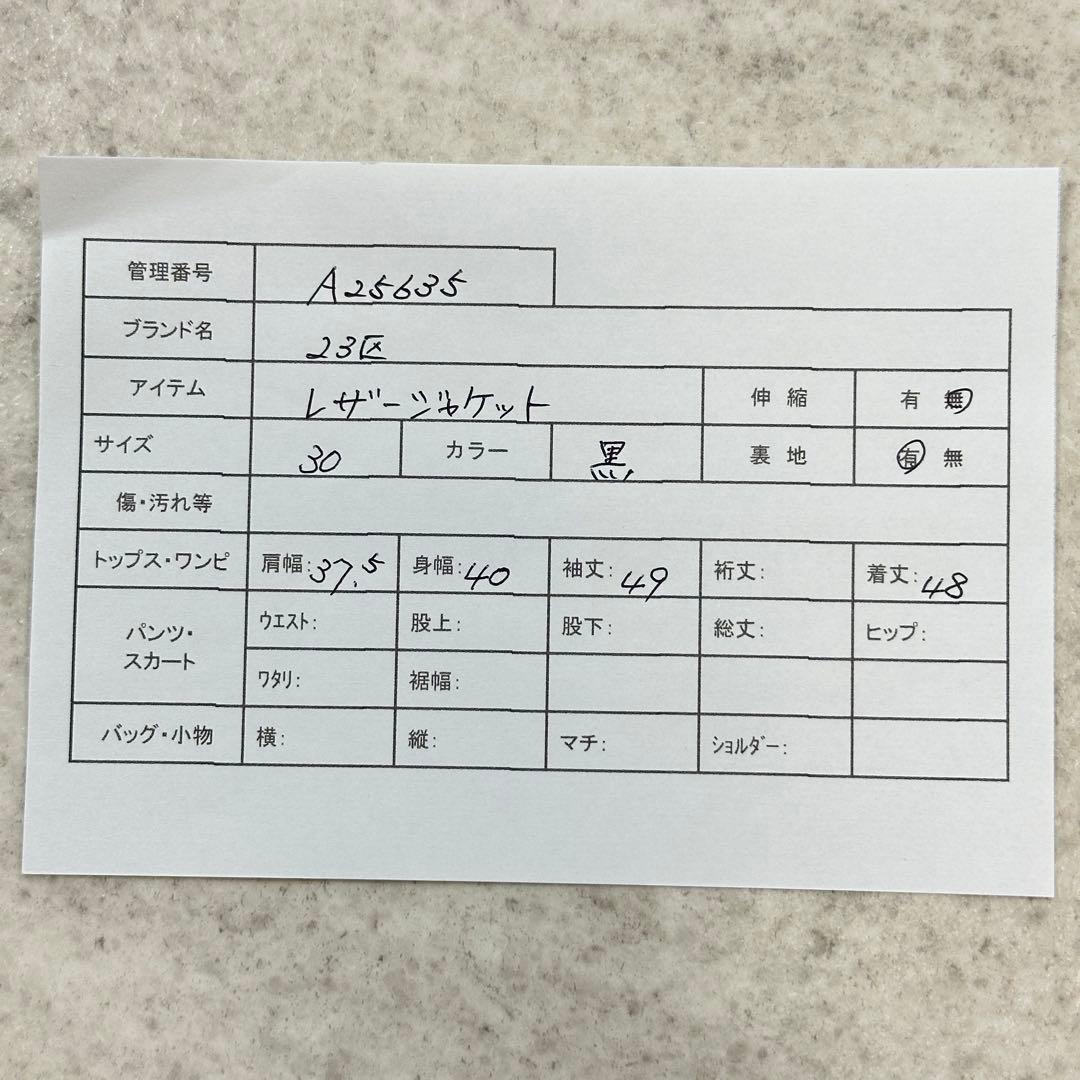 管理番号 A25635
ブランド名 23区
アイテム レザージャケット 伸縮 有 無
サイズ 30 カラー 黒 裏地 有 無
傷・汚れ等
トップス・ワンピ 肩幅:37.5 身幅:40 袖丈:49 裄丈: 着丈:48
パンツ・スカート ウエスト: 股上: 股下: 総丈: ヒップ:
ワタリ: 裾幅:
バッグ・小物 横: 縦: マチ: ショルダー: